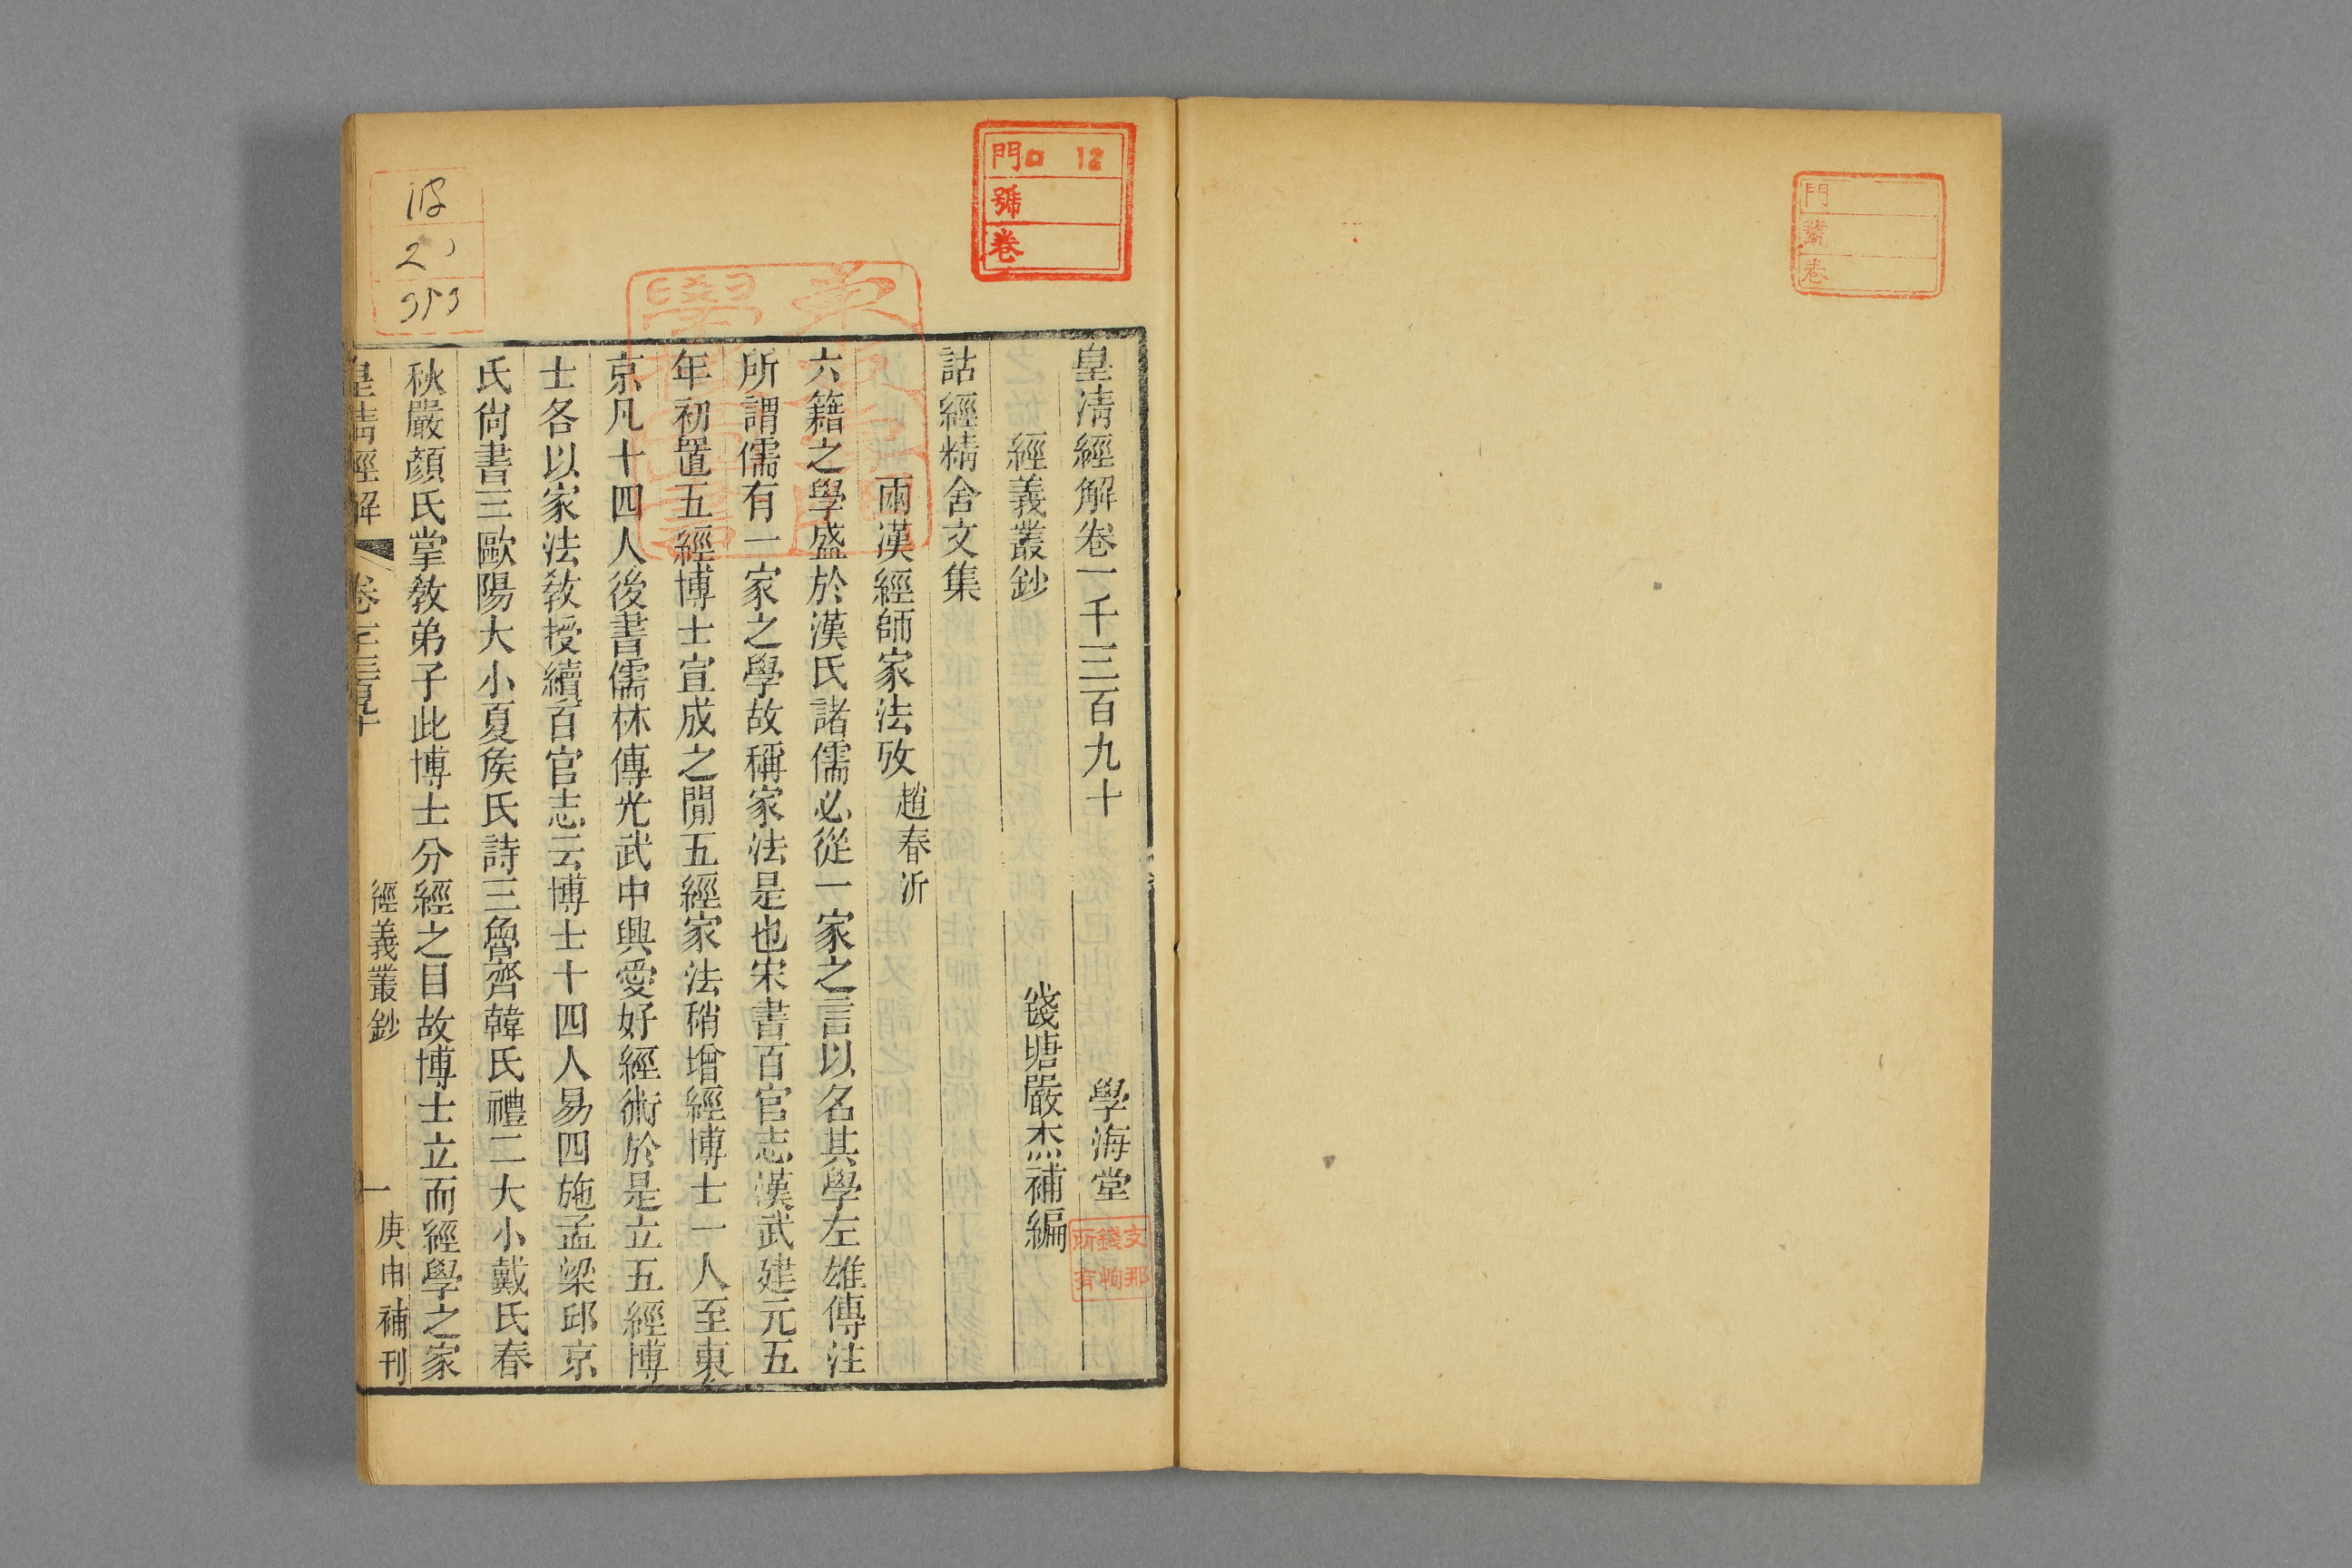 門
號
卷
門ロ 12
號
卷
皇清經解卷一千三百九十 學海堂
經義叢鈔 錢塘嚴杰補編
詁經精舍文集
兩漢經師家法攷 趙春沂
六籍之學盛於漢氏諸儒必從一家之言以名其學左雄傳注
所謂儒有一家之學故稱家法是也宋書百官志漢武建元五
年初置五經博士宣成之閒五經家法稍增經博士一人至東
京凡十四人後書儒林傳光武中興愛好經術於是立五經博
士各以家法敎授續百官志云博士十四人易四施孟梁邱京
氏尙書三歐陽大小夏矦氏詩三魯齊韓氏禮二大小戴氏春
秋嚴顏氏掌敎弟子此博士分經之目故博士立而經學之家
皇清經解 卷一千三百九十 經義叢鈔 一 庚申補刊